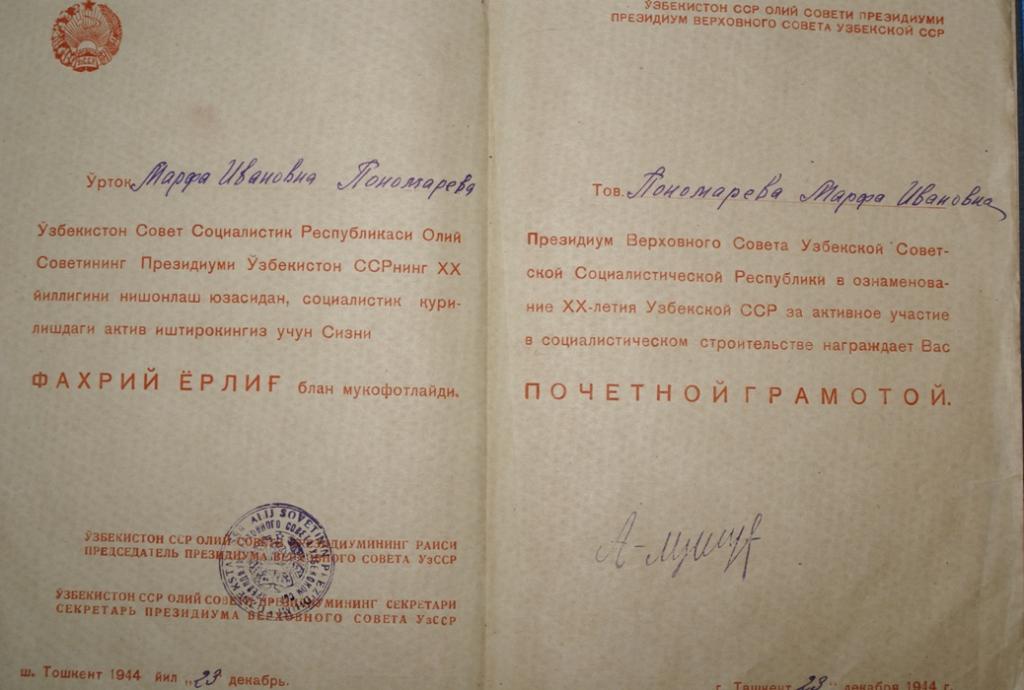 Ўртоқ Марфа Ивановна Пономарева
Ўзбекистон Совет Социалистик Республикаси Олий
Советининг Президиуми Ўзбекистон ССРнинг XX
йиллигини нишонлаш юзасидан, социалистик қури-
лишдаги актив иштирокингиз учун Сизни
ФАХРИЙ ЁРЛИҒ блан мукофотлайди.
ЎЗБЕКИСТОН ССР ОЛИЙ СОВЕТИ ПРЕЗИДИУМИНИНГ РАИСИ
ПРЕДСЕДАТЕЛЬ ПРЕЗИДИУМА ВЕРХОВНОГО СОВЕТА УзССР
ЎЗБЕКИСТОН ССР ОЛИЙ СОВЕТИ ПРЕЗИДИУМИНИНГ СЕКРЕТАРИ
СЕКРЕТАРЬ ПРЕЗИДИУМА ВЕРХОВНОГО СОВЕТА УзССР
ш. Тошкент 1944 йил „23 декабрь.
ЎЗБЕКИСТОН ССР ОЛИЙ СОВЕТИ ПРЕЗИДИУМИ
ПРЕЗИДИУМ ВЕРХОВНОГО СОВЕТА УЗБЕКСКОЙ ССР
Тов. Пономарева Марфа Ивановна
Президиум Верховного Совета Узбекской Совет-
ской Социалистической Республики в ознаменова-
ние XX-летия Узбекской ССР за активное участие
в социалистическом строительстве награждает Вас
ПОЧЕТНОЙ ГРАМОТОЙ.
г. Ташкент „23" декабря 1944 г.